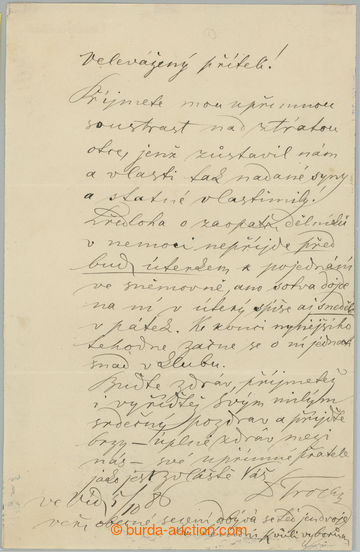 Velevážený příteli!
Přijmete mou upřímnou
soustrast nad ztrátou
otce, jenž zůstavil nám
a vlasti tak nadané syny
a statné vlastimily!
Předloha o zaopatř. dělníků
v nemoci nepřijde před
budoucím úterkem k pojednání
ve sněmovně, ano sotva dojde
na ni v úterý spíše až
v pátek. Ke konci nynějšího
tehodne, začne se o ní jednat
snad v klubu.
Buďte zdráv, přijmetež
i vyřiďtež svým milým
srdečný pozdrav a přijďte
brzy – úplně zdráv mezi
nás – své upřímné přátele
jako jest zvláště Váš
ve Vídni 5/10 86
© burda-auction.com